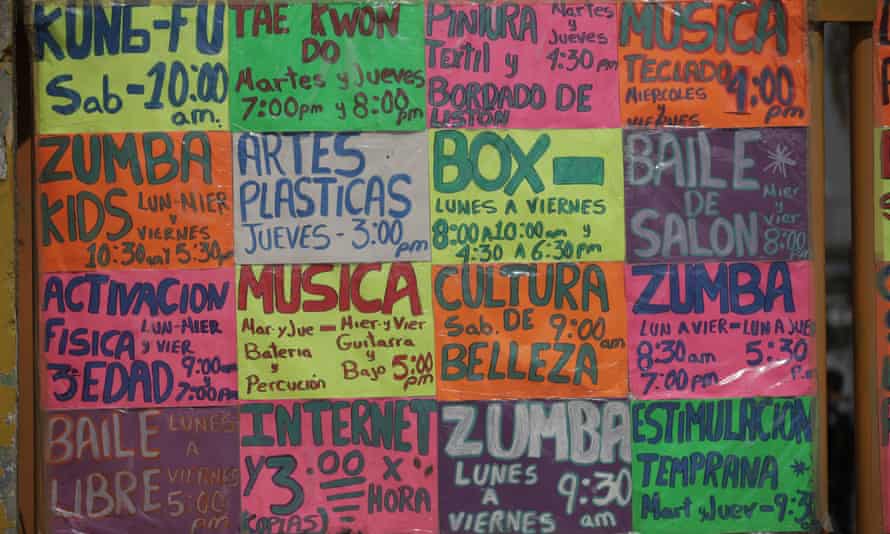 KUNG-FU
Sab-10:00
am.
TAE KWON
DO
Martes y Jueves
7:00pm y 8:00pm
PINTURA
Textil y
Martes
y
Jueves
4:30pm
BORDADO DE
LISTON
MUSICA
TECLADO
MIERCOLES
y
VIERNES
4:00
pm
ZUMBA
KIDS
LUN-MIER
y
VIERNES
10:30am y 5:30pm
ARTES
PLASTICAS
JUEVES-3:00
pm
BOX-
LUNES A VIERNES
8:00 A 10:00am y
4:30 A 6:30pm
BAILE
DE
SALON
Mier
y
vier
8:00
pm
ACTIVACION
FISICA
LUN-MIER
y VIER
3ª EDAD
9:00am
y
7:00pm
MUSICA
Mar y Jue-
Bateria
y
Percución
Mier y Vier
Guitarra
y
Bajo
5:00
pm
CULTURA
Sab. DE 9:00
am
BELLEZA
ZUMBA
LUN A VIER=LUN A JUE
8:30am
7:00pm
5:30
p.m
BAILE
LIBRE
LUNES
A
VIERNES
5:00
pm
INTERNET
y 3.00 x
HORA
COPIAS)
ZUMBA
LUNES
A
VIERNES
9:30
am
ESTIMULACION
TEMPRANA
Mart y Juev-9:30